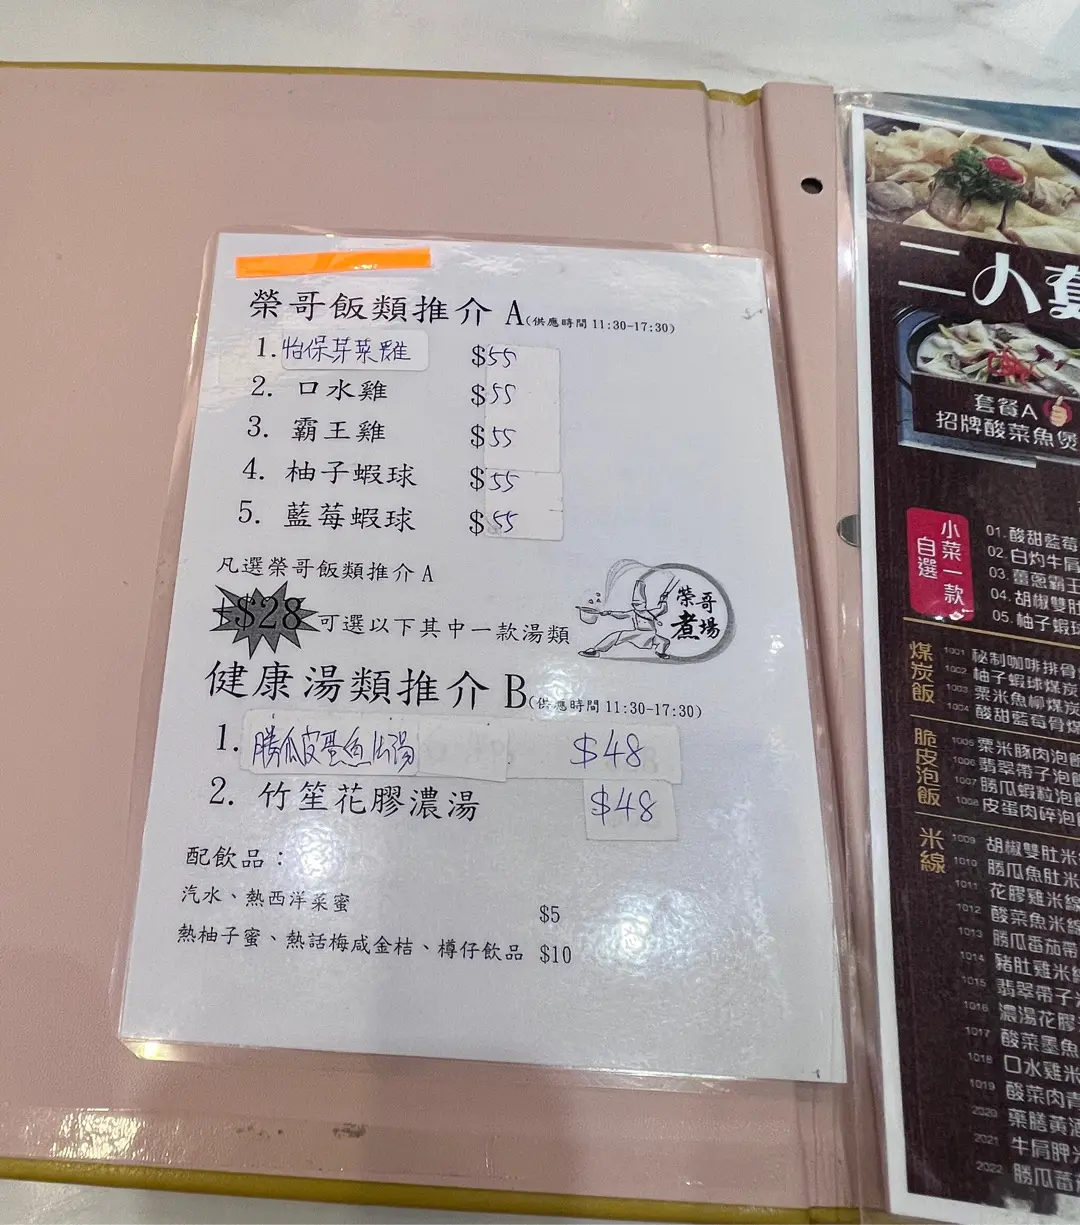 榮哥飯類推介 A(供應時間 11:30-17:30)
1. 怡保芽菜雞 $55
2. 口水雞 $55
3. 霸王雞 $55
4. 柚子蝦球 $55
5. 藍莓蝦球 $55
凡選榮哥飯類推介 A
+$28 可選以下其中一款湯類
榮哥
煮場
健康湯類推介 B(供應時間 11:30-17:30)
1. 勝瓜皮蛋魚片湯 $48
2. 竹笙花膠濃湯 $48
配飲品：
汽水、熱西洋菜蜜 $5
熱柚子蜜、熱話梅咸金桔、樽仔飲品 $10
二人套
套餐A
招牌酸菜魚煲
小菜一款
自選
01.酸甜藍莓
02.白灼牛肩
03.薑蔥霸王
04.胡椒雙肚
05.柚子蝦球
煤炭飯
1001 秘制咖啡排骨
1002 柚子蝦球煤炭
1003 粟米魚柳煤炭
1004 酸甜藍莓骨煤
脆皮泡飯
1005 粟米豚肉泡飯
1006 翡翠帶子泡飯
1007 勝瓜蝦粒泡飯
1008 皮蛋肉碎泡飯
米線
1009 胡椒雙肚米
1010 勝瓜魚肚米
1011 花膠雞米線
1012 酸菜魚米線
1013 勝瓜番茄帶
1014 豬肚雞米線
1015 翡翠帶子米
1016 濃湯花膠
1017 酸菜墨魚
1018 口水雞米
1019 酸菜肉青
2020 藥膳黃酒
2021 牛肩胛米
2022 勝瓜番茄